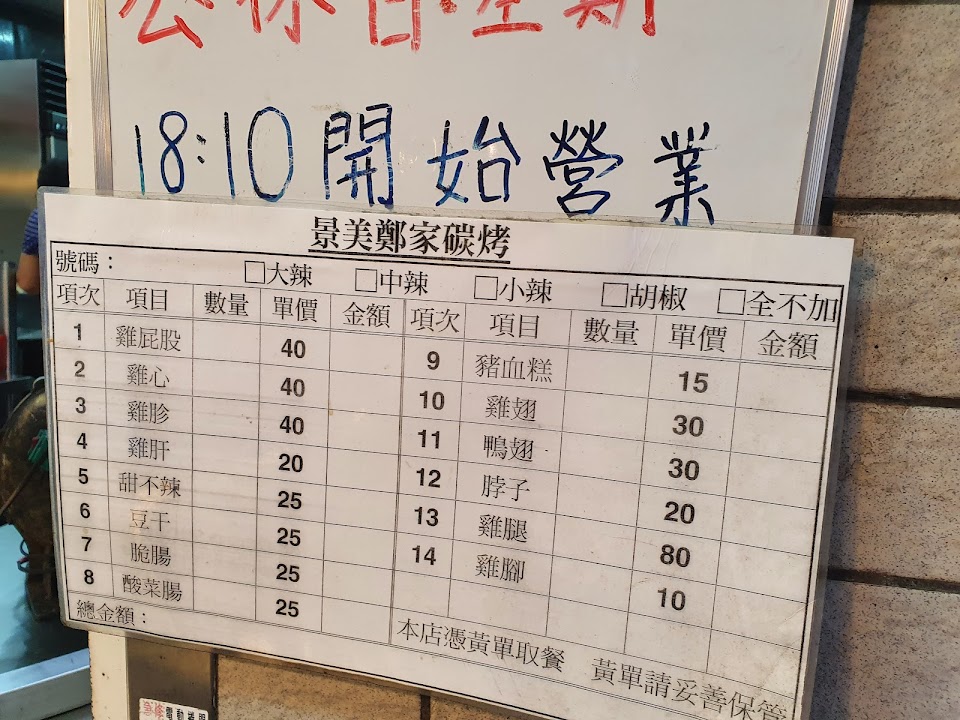 公休日:星期
18:10開始營業
景美鄭家碳烤
號碼: □大辣 □中辣 □小辣 □胡椒 □全不加
項次 項目 數量 單價 金額 項次 項目 數量 單價 金額
1 雞屁股 40 9 豬血糕 15
2 雞心 40 10 雞翅 30
3 雞胗 40 11 鴨翅 30
4 雞肝 20 12 脖子 20
5 甜不辣 25 13 雞腿 80
6 豆干 25 14 雞腳 10
7 脆腸 25
8 酸菜腸 25
總金額: 本店憑黃單取餐 黃單請妥善保管